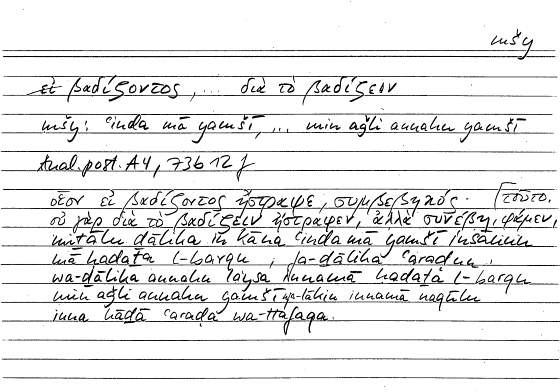 mšy
εἰ βαδίζοντος, ... διὰ τὸ βαδίζειν
mšy: ʿinda mā yamšī, ... min aǧli annahu yamšī
Anal. post. A4, 73b 12 f
οἷον εἰ βαδίζοντος ἤστραψε, συμβεβηκός. [τοῦτο.
οὐ γὰρ διὰ τὸ βαδίζειν ἤστραψεν, ἀλλὰ συνέβη, φαμέν,
miṯālu ḏālika in kāna ʿindamā yamšī insānun
mā ḥadaṯa l-barqu, fa-ḏālika ʿaraḍun.
wa-ḏālika annahu laysa innamā ḥadaṯa l-barqu
min aǧli annahu yamšī wa-lākin innamā naqūlu
inna hāḏā ʿaraḍa wa-ttafaqa.